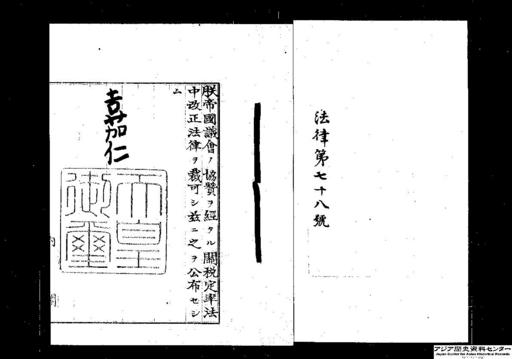 法律第七十八號
朕帝國議會ノ協賛ヲ經タル關税定率法
中改正法律ヲ裁可シ茲ニ之ヲ公布セシ
ム
嘉仁
天皇
御璽
内
閣
アジア歴史資料センター
Japan Center for Asian Historical Records